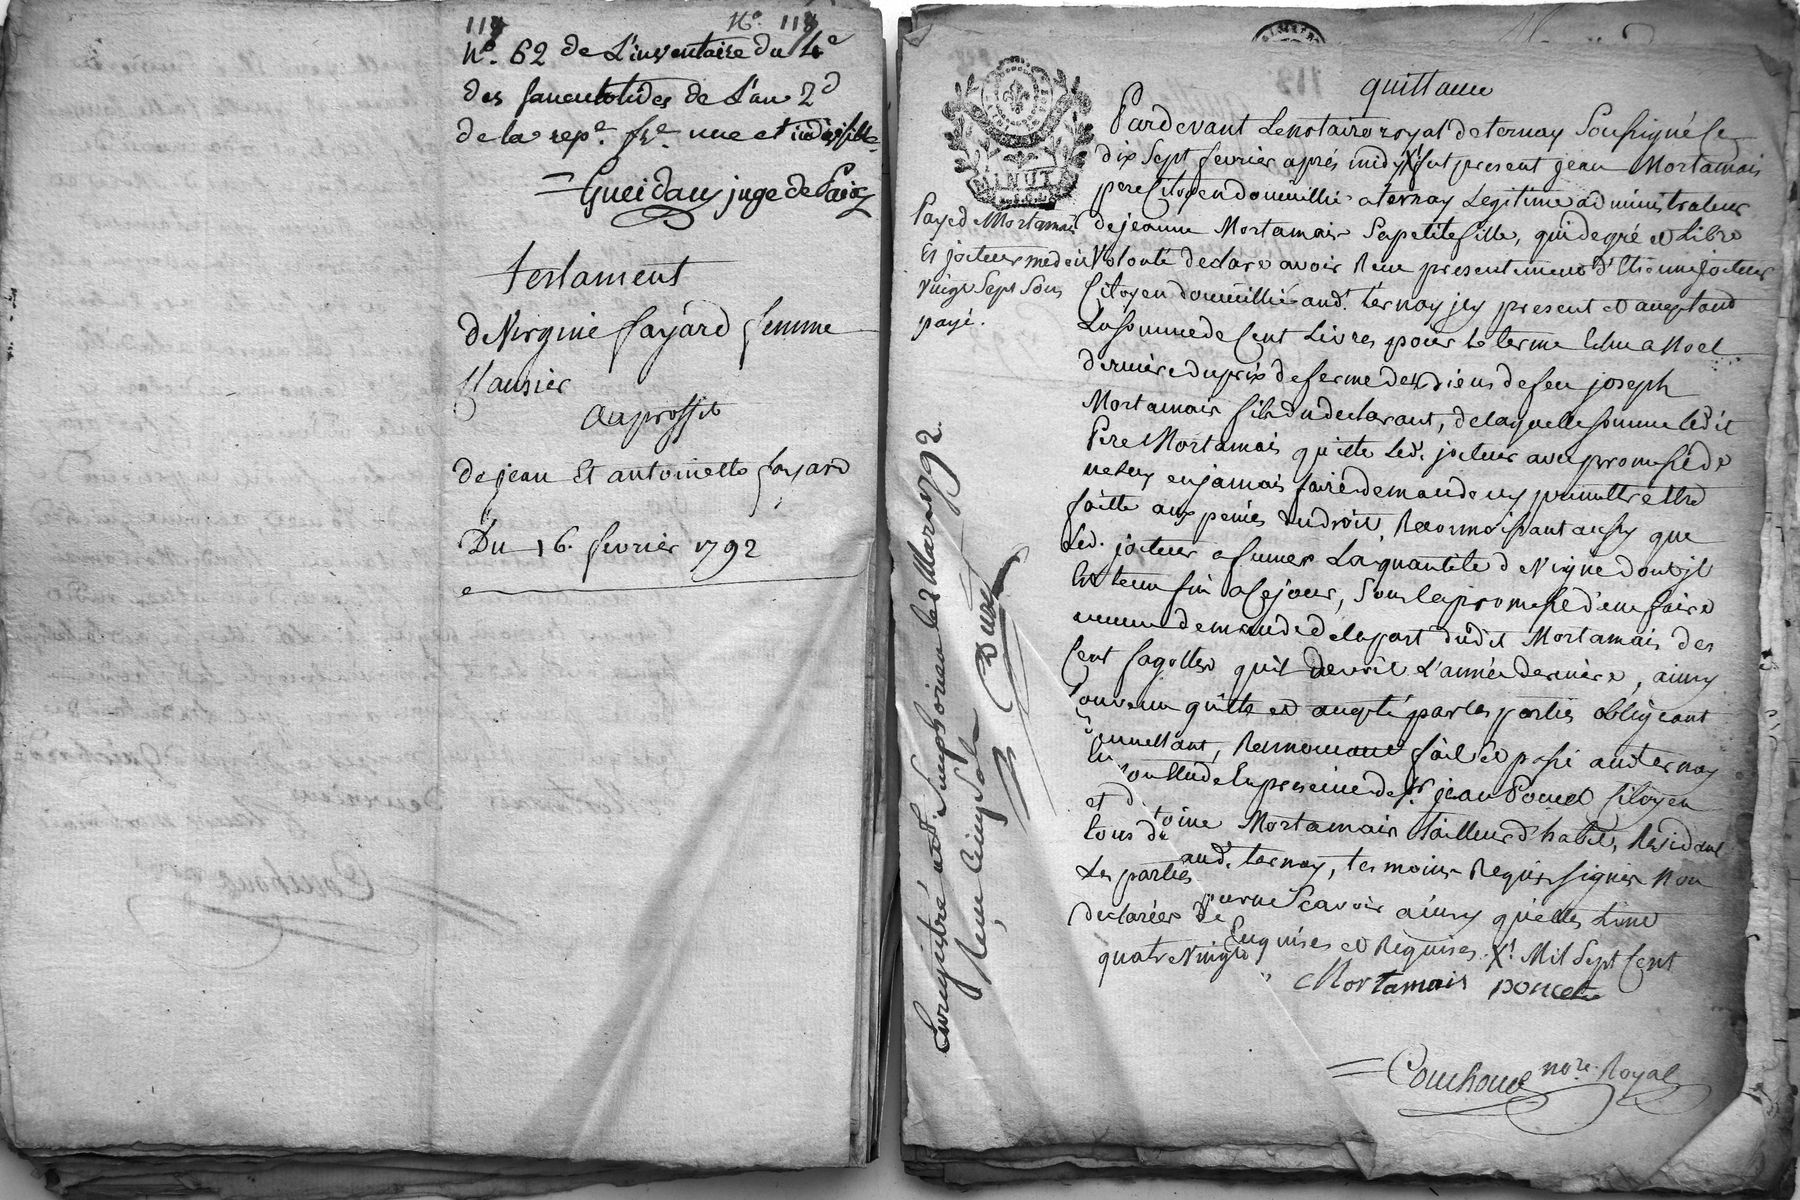 117 N°. 117
N°. 62 de L'inventaire du 4e
des sanculotides de L'an 2d
de la repe. fse. une et indivisible
= Gueidan juge de Paix
testament
de Virginie fayard femme
Clausier
au proffit
de jean Et antoinette fayard
Du 16. fevrier 1792
quittance
Pardevant Le notaire royal de ternay Soussigné le
dix Sept fevrier après midy X fut present jean Mortamais
pere Citoyen domicillié a ternay Legitime administrateur
de jeanne Mortamais Sa petite fille, qui de gré et Libre
Volonté declare avoir Reçu presentement d'Etienne jocteur
Citoyen domicillié aud. ternay jcy present et aceptant
La Somme de Cent Livres pour le terme Echu a Noel
dernier du prix de ferme des biens de feu joseph
Mortamais fils du declarant, de laquelle somme ledit
Pere Mortamais quitte led. jocteur avec promesse de
ne luy en jamais faire demande ny permettre être
faitte aux peines du droit, Reconnoissant aussy que
Led. jocteur a fumer La quantité de Vigne dont il
Est tenu a Ce jour, Sous la promesse d'en faire
aucune demande de la part dudit Mortamais des
Cent fagottes quil devoit L'année derniere, ainsy
Convenu quitté et acepté par les parties obligeant
fait et passé aud ternay
En presence de Sr. jean Poncet Citoyen
et toine Mortamais tailleur d'habits, Residant
tous d aud. ternay, temoins Requis signés Non
Les parties pour ne Scavoir ainsy quelles L'ont
declarées de Enquises et Requises. X Mil Sept Cent
quatre Vingt
Mortamais poncet
= Couchoud nore. Royal
Payed Mortamais
Et jocteur
vingt Sept Sous
payé.
Enregistré a St. Simphorien le 2 Mars 1792.
Reçu Cinq Sols